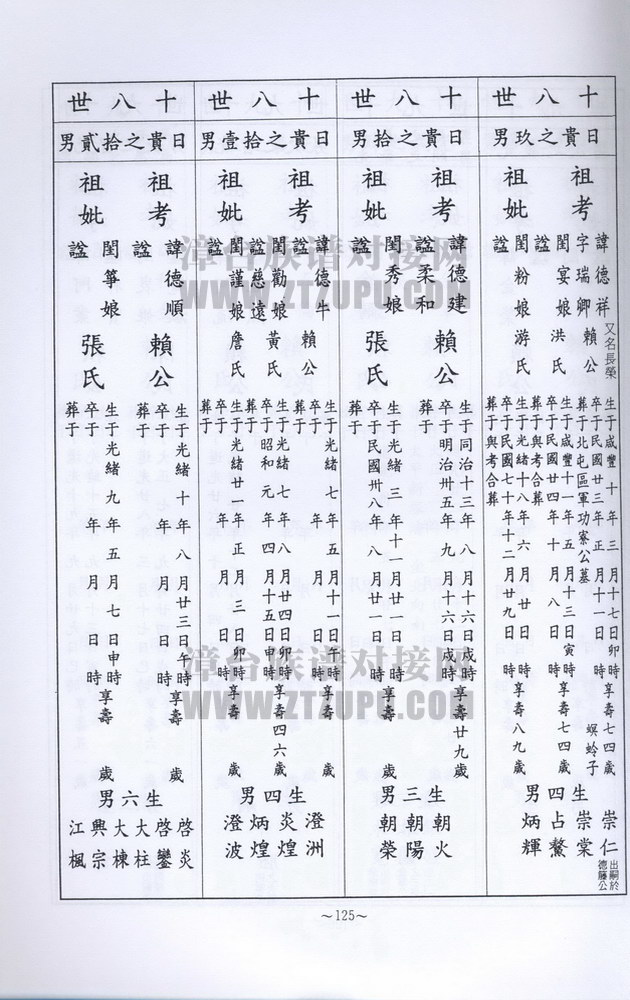 十八世
日貴之玖男
祖考
諱德祥
又名長榮
字瑞卿 賴公
閨宴娘 洪氏
謚
祖妣
閨粉娘 游氏
謚
生于咸豐十年三月十七日卯時享壽七四歲
卒于民國廿三年正月十一日
葬于北屯區軍功寮公墓
生于咸豐十一年五月十三日寅時享壽七四歲
卒于民國廿四年十月八日
葬于與考合葬
生于光緒十八年六月廿日時享壽八九歲
卒于民國七十年十二月廿九日
葬于與考合葬
螟蛉子
崇仁 出嗣於德藤公
生四男
崇棠
占鰲
炳輝
十八世
日貴之拾男
祖考
諱德建 賴公
謚柔和
祖妣
閨秀娘 張氏
謚
生于同治十三年八月十六日戌時享壽廿九歲
卒于明治卅五年九月十六日
葬于
生于光緒三年十一月廿一日時享壽 歲
卒于民國卅八年八月廿一日
葬于
生三男
朝火
朝陽
朝榮
十八世
日貴之拾壹男
祖考
諱德牛 賴公
謚
閨勸娘 黃氏
謚慈遠
祖妣
閨謹娘 詹氏
謚
生于光緒七年五月十一日午時享壽 歲
卒于 年 月 日
葬于
生于光緒七年八月廿四日卯時享壽四六歲
卒于昭和元年四月十五日申時
葬于
生于光緒廿一年正月三日卯時享壽 歲
卒于 年 月 日
葬于
生四男
澄洲
炎煌
炳煌
澄波
十八世
日貴之拾貳男
祖考
諱德順 賴公
謚
祖妣
閨箏娘 張氏
謚
生于光緒十年八月廿三日午時享壽 歲
卒于 年 月 日 時
葬于
生于光緒九年五月七日申時享壽 歲
卒于 年 月 日 時
葬于
生六男
啓炎
啓鑾
大柱
大棟
興宗
江楓
～125～
漳台族谱对接网
WWW.ZTZUPU.COM
漳台族谱对接网
WWW.ZTZUPU.COM